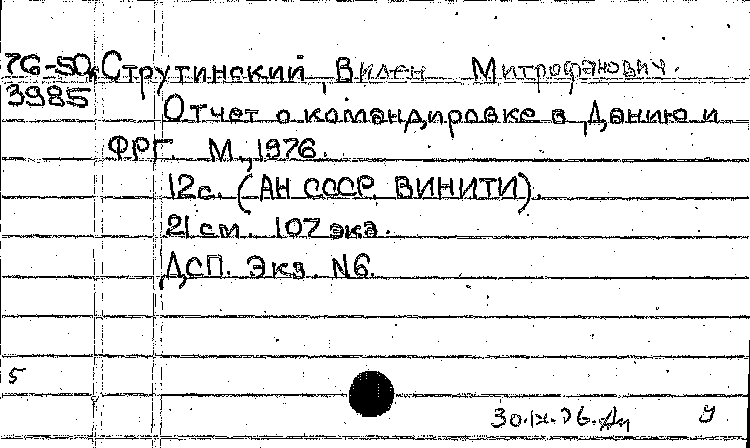 76-50к Струтинский, Вилен Митрофанович.
3985
Отчет о командировке в Данию и
ФРГ. М., 1976.
12с. (АН СССР. ВИНИТИ).
21 см. 107 экз.
ДСП. Экз. N6.
5
30.IX.76.